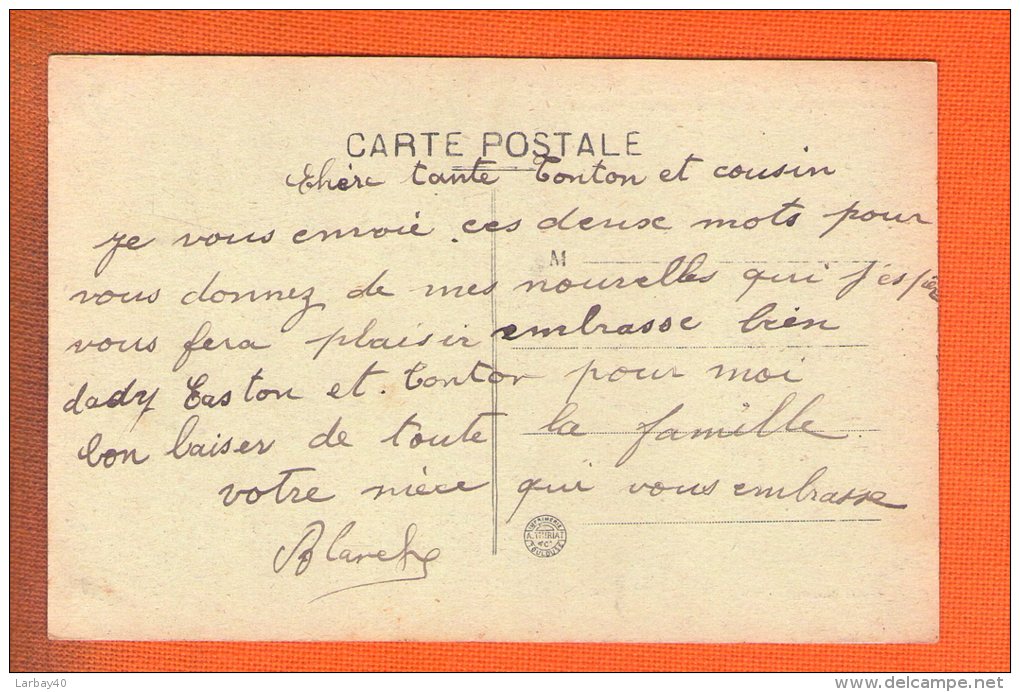 CARTE POSTALE
Chère tante Tonton et cousin
je vous envoie ces deux mots pour
M
vous donnez de mes nouvelles qui j'espère
vous fera plaisir embrasse bien
dady Gaston et Tonton pour moi
bon baiser de toute la famille
votre nièce qui vous embrasse
Blanche
IMPRIMERIE
A. THIRIAT
& Cie
TOULOUSE
Larbay40
www.delcampe.net